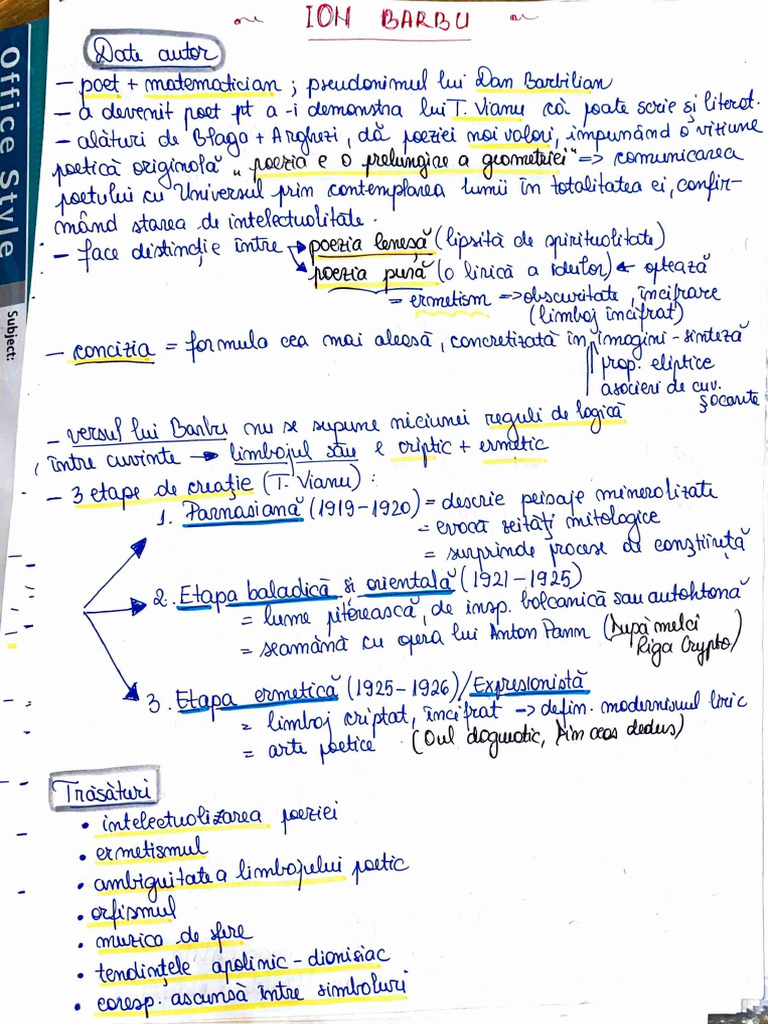 ION BARBU
Date autor
Office Style
Subject:
- poet + matematician ; pseudonimul lui Dan Barbilian
- a devenit poet pt a-i demonstra lui T. Vianu că poate scrie și literat.
- alături de Blaga + Arghezi, dă poeziei noi valori, impunând o viziune
poetică originală "poezia e o prelungire a geometriei" => comunicarea
poetului cu Universul prin contemplarea lumii în totalitatea ei, confir-
mând starea de intelectualitate.
- face distincție între → poezia leneșă (lipsită de spiritualitate)
→ poezia pură (o lirică a ideilor) ← optează
= ermetism => obscuritate, încifrare
(limbaj încifrat)
- concizia = formula cea mai aleasă, concretizată în imagini-sinteză
prop. eliptice
asocieri de cuv.
șocante
- versul lui Barbu nu se supune niciunei reguli de logică
între cuvinte → limbajul său e criptic + ermetic
- 3 etape de creație (T. Vianu) :
1. Parnasiană (1919-1920) = descrie peisaje mineralizate
= evocă zeități mitologice
= surprinde procese de conștiință
2. Etapa baladică și orientală (1921-1925)
= lume pitorească, de insp. balcanică sau autohtonă
= seamănă cu opera lui Anton Pann (După melci
Riga Crypto)
3. Etapa ermetică (1925-1926)/Expresionistă
= limbaj criptat, încifrat → defin. modernismul liric
= arte poetice (Oul dogmatic, Din ceas dedus)
Trăsături
• intelectualizarea poeziei
• ermetismul
• ambiguitatea limbajului poetic
• orfismul
• muzica de sfere
• tendințele apolinic-dionisiac
• coresp. ascunsă între simboluri